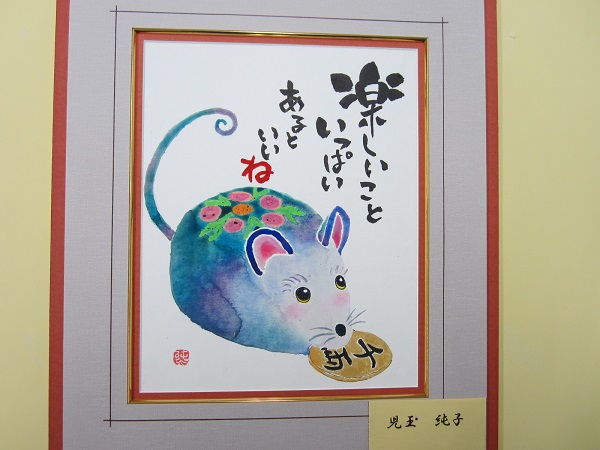 楽しいこと
いっぱい
あると
いい
ね
千両
純
児玉 純子